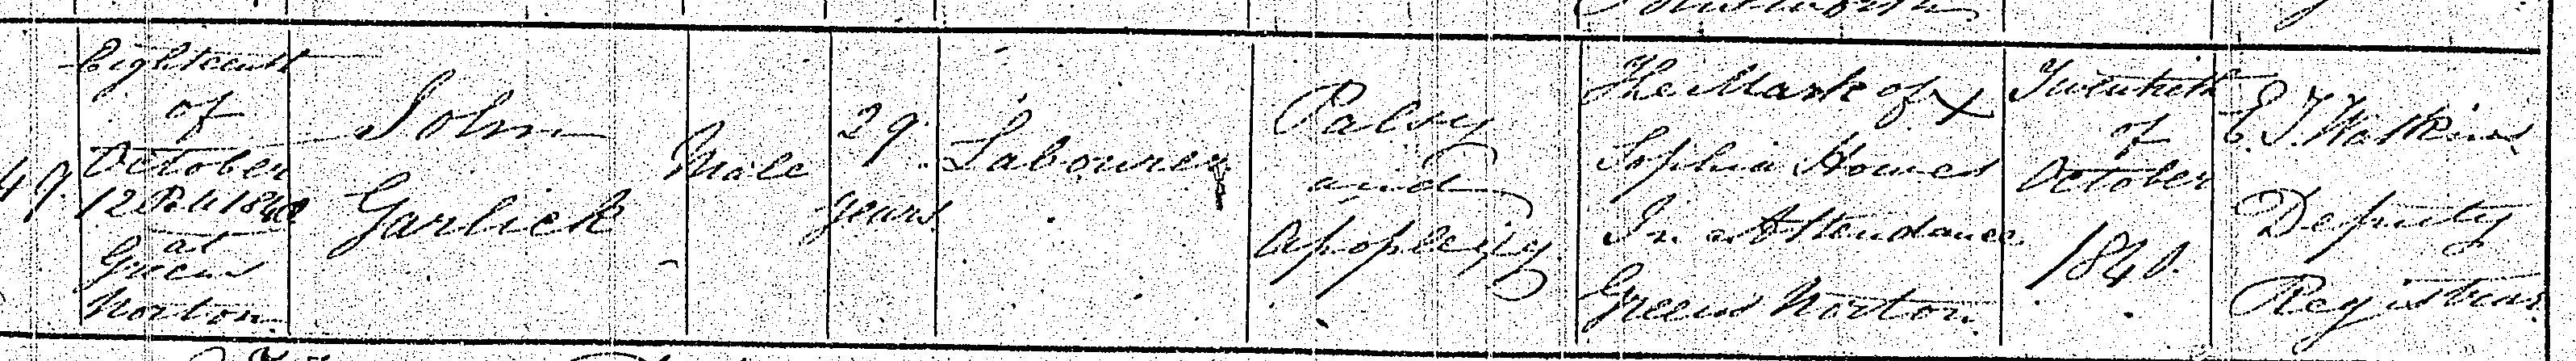 49.
Eighteenth
of
October
12 1840
at
Greens
Norton.
John
Garlick
Male
29.
years
Labourer
Palsy
and
Apoplexy
The Mark of X
Sophia Howes
In Attendance
Greens Norton.
Twentieth
of
October
1840.
E. J. Watkins
Deputy
Registrar.